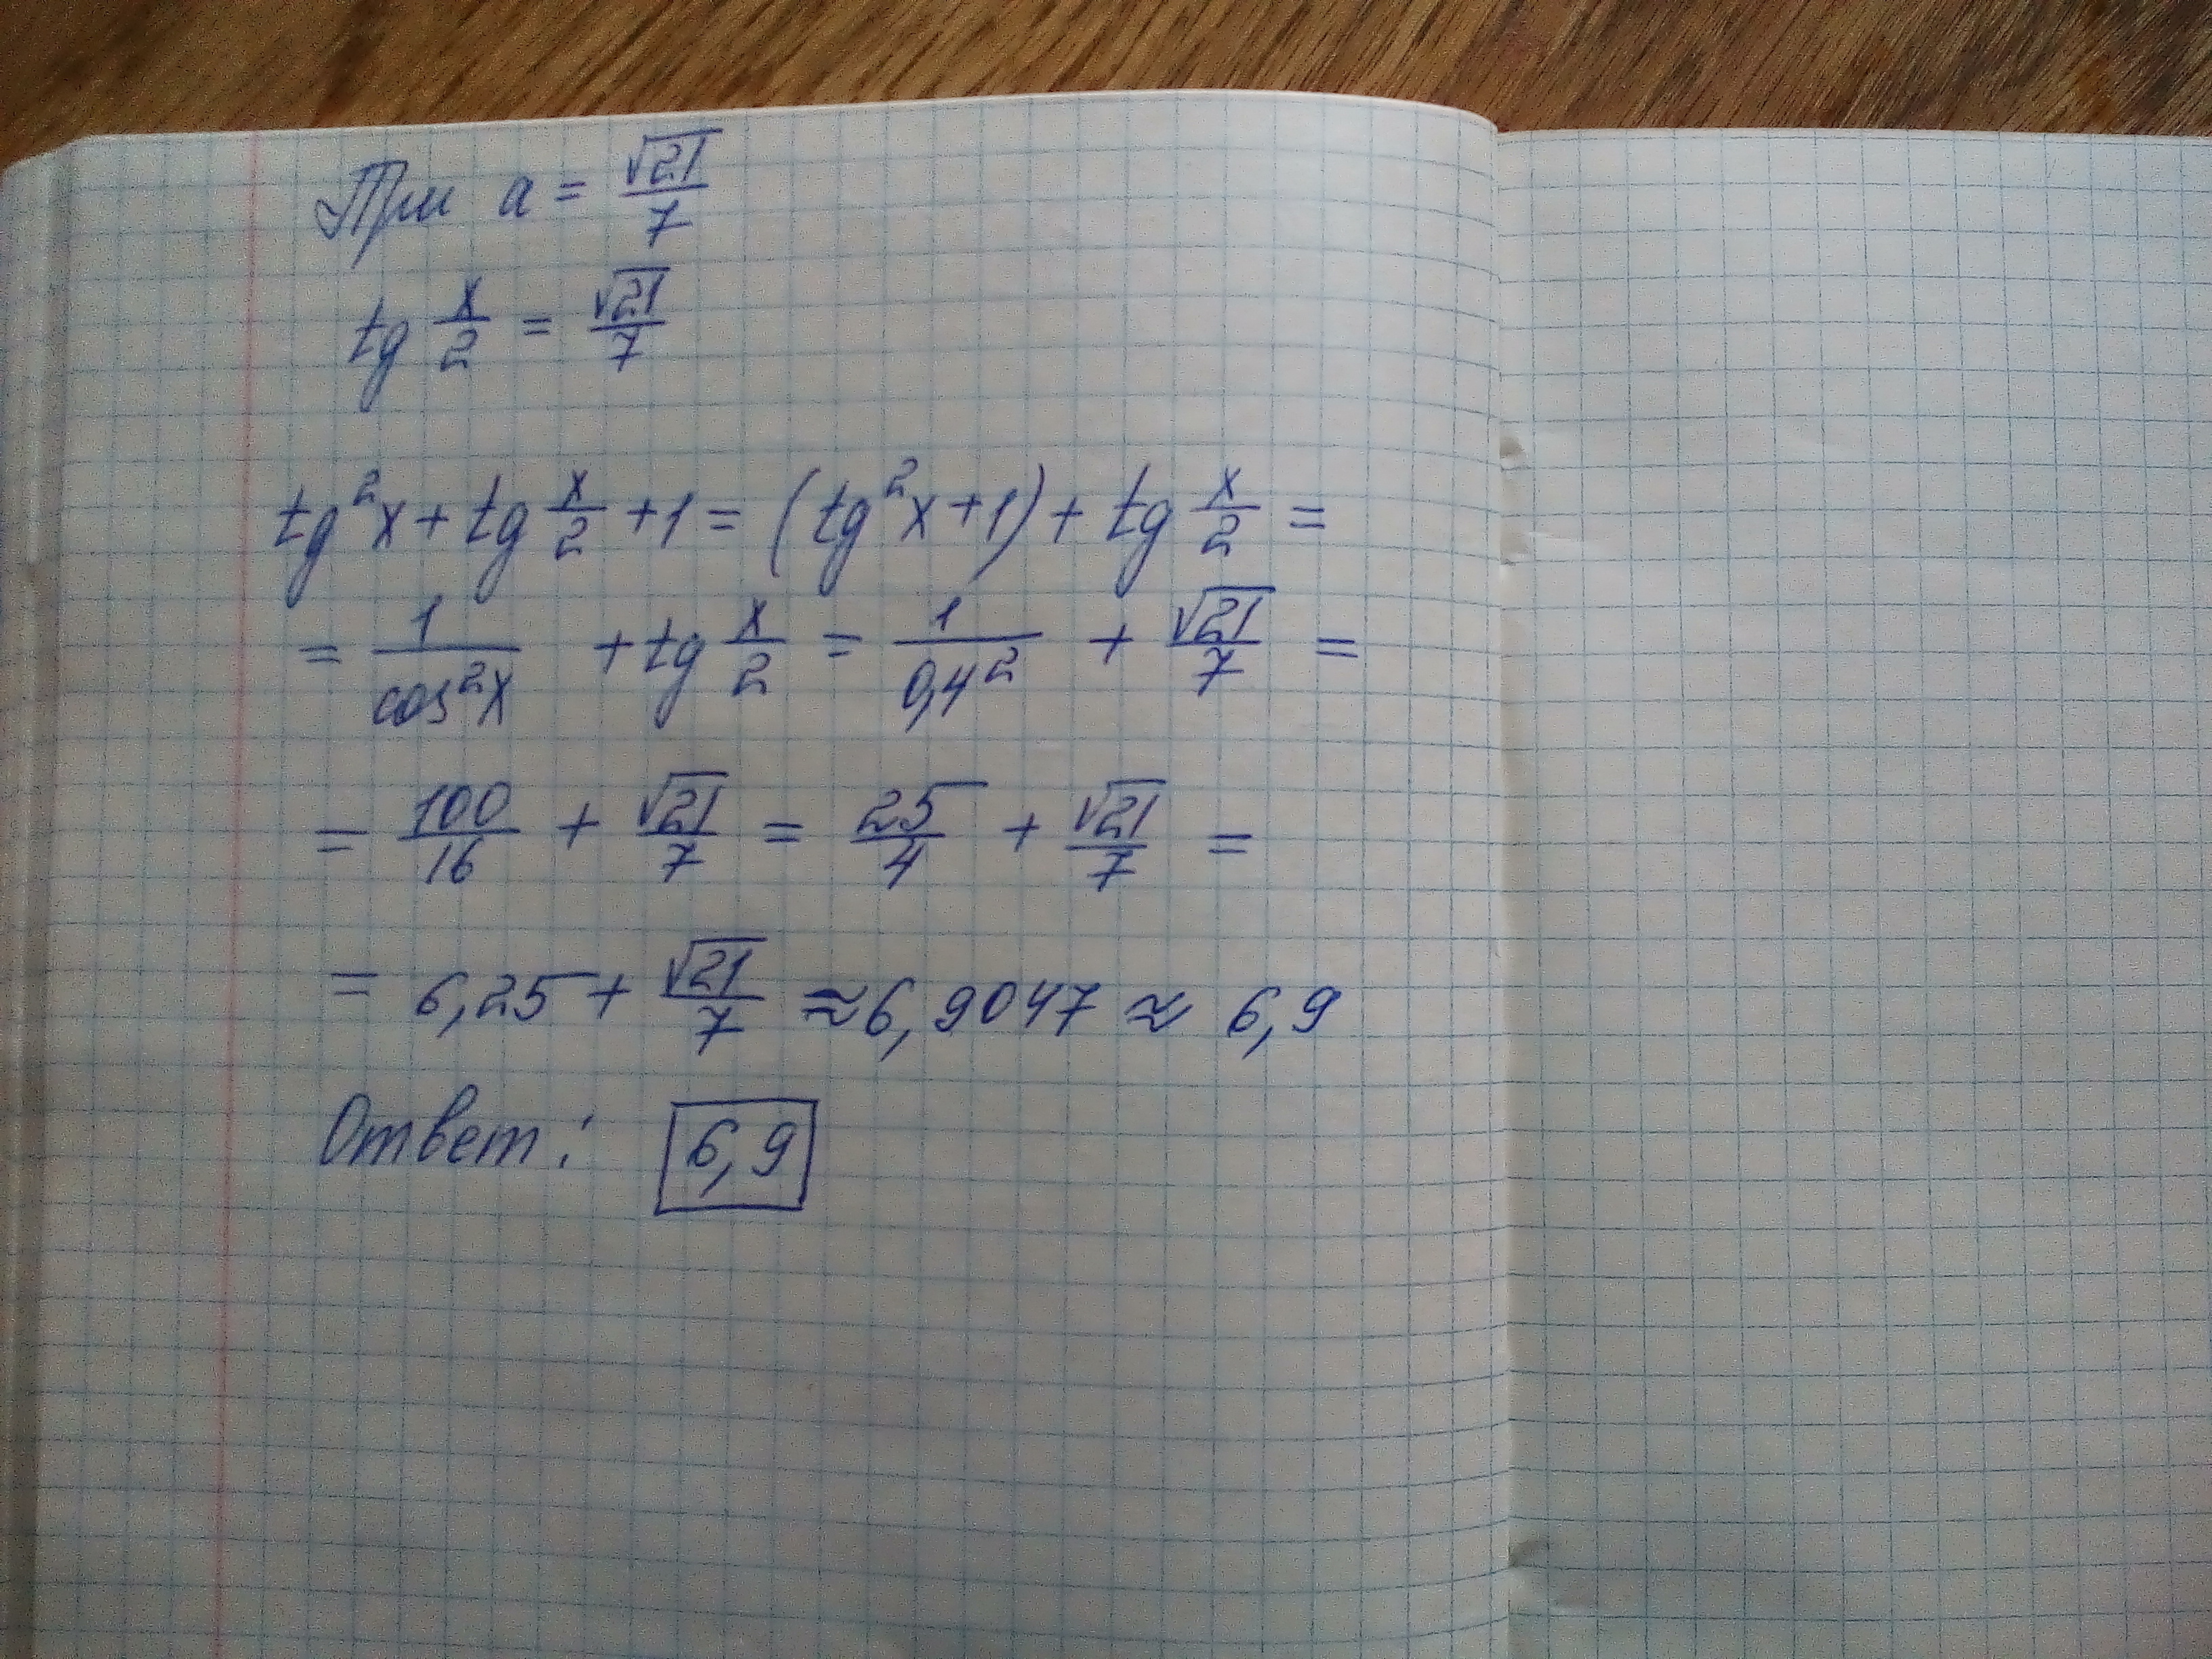 При a = √21/7
tg x/2 = √21/7
tg²x + tg x/2 + 1 = (tg²x + 1) + tg x/2 =
= 1/cos²x + tg x/2 = 1/0,4² + √21/7 =
= 100/16 + √21/7 = 25/4 + √21/7 =
= 6,25 + √21/7 ≈ 6,9047 ≈ 6,9
Ответ: 6,9